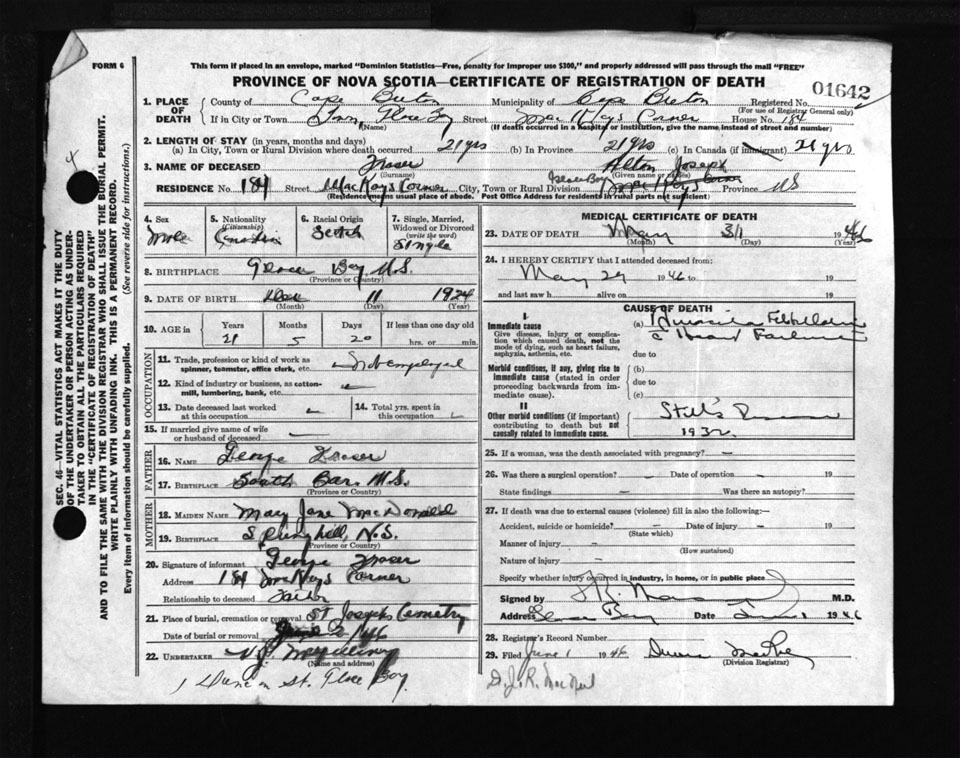 FORM 6
This form if placed in an envelope, marked "Dominion Statistics—Free, penalty for improper use $300," and properly addressed will pass through the mail "FREE"
PROVINCE OF NOVA SCOTIA—CERTIFICATE OF REGISTRATION OF DEATH
01642
1. PLACE OF DEATH
County of Cape Breton Municipality of Cape Breton Registered No.
(For use of Registrar General only)
If in City or Town Glace Bay Street MacKays Corner House No. 184
(Name) (If death occurred in a hospital or institution, give the name instead of street and number)
2. LENGTH OF STAY (in years, months and days)
(a) In City, Town or Rural Division where death occurred 21 yrs (b) In Province 21 yrs (c) In Canada (if immigrant) 21 yrs
3. NAME OF DECEASED Fraser Alton Joseph
(Surname) (Given name or names)
RESIDENCE No. 184 Street MacKays Corner City, Town or Rural Division Glace Bay Province N.S
(Residence means usual place of abode. Post Office Address for residents in rural parts not sufficient)
4. Sex Male
5. Nationality (Citizenship) Canadian
6. Racial Origin Scotch
7. Single, Married, Widowed or Divorced (write the word) Single
8. BIRTHPLACE Glace Bay N.S.
(Province or Country)
9. DATE OF BIRTH Dec 11 1924
(Month) (Day) (Year)
10. AGE in Years Months Days If less than one day old
21 5 20 hrs. or min.
OCCUPATION
11. Trade, profession or kind of work as spinner, teamster, office clerk, etc. Not employed
12. Kind of industry or business, as cotton-mill, lumbering, bank, etc.
13. Date deceased last worked at this occupation
14. Total yrs. spent in this occupation
15. If married give name of wife or husband of deceased —
FATHER
16. NAME George Fraser
17. BIRTHPLACE South Bar N.S.
(Province or Country)
MOTHER
18. MAIDEN NAME Mary Jane MacDonald
19. BIRTHPLACE Springhill, N.S.
(Province or Country)
20. Signature of informant George Fraser
Address 184 McKays Corner
Relationship to deceased Father
21. Place of burial, cremation or removal St Josephs Cemetry
Date of burial or removal
22. UNDERTAKER V.J.
(Name and address)
St. Glace Bay.
MEDICAL CERTIFICATE OF DEATH
23. DATE OF DEATH May 31 1946
(Month) (Day) (Year)
24. I HEREBY CERTIFY that I attended deceased from:
May 29 1946 to 19
and last saw h alive on 19
CAUSE OF DEATH
I.
Immediate cause
Give disease, injury or complication which caused death, not the mode of dying, such as heart failure, asphyxia, asthenia, etc.
(a) Auricular Fibrillation
c Heart Failure
due to
Morbid conditions, if any, giving rise to immediate cause (stated in order proceeding backwards from immediate cause).
(b)
due to
(c)
II
Other morbid conditions (if important) contributing to death but not causally related to immediate cause.
Still's Disease
1932.
25. If a woman, was the death associated with pregnancy? —
26. Was there a surgical operation? — Date of operation — 19
State findings — Was there an autopsy?
27. If death was due to external causes (violence) fill in also the following:—
Accident, suicide or homicide? — Date of injury — 19
(State which)
Manner of injury —
(How sustained)
Nature of injury —
Specify whether injury occurred in industry, in home, or in public place
Signed by M.D.
Address Glace Bay Date June 1 1946
28. Registrar's Record Number
29. Filed June 1 1946
(Division Registrar)
D. J. R. MacNeil
SEC. 46—VITAL STATISTICS ACT MAKES IT THE DUTY
OF THE UNDERTAKER OR PERSON ACTING AS UNDER-
TAKER TO OBTAIN ALL THE PARTICULARS REQUIRED
IN THE "CERTIFICATE OF REGISTRATION OF DEATH"
AND TO FILE THE SAME WITH THE DIVISION REGISTRAR WHO SHALL ISSUE THE BURIAL PERMIT.
WRITE PLAINLY WITH UNFADING INK. THIS IS A PERMANENT RECORD.
Every item of information should be carefully supplied. (See reverse side for instructions.)